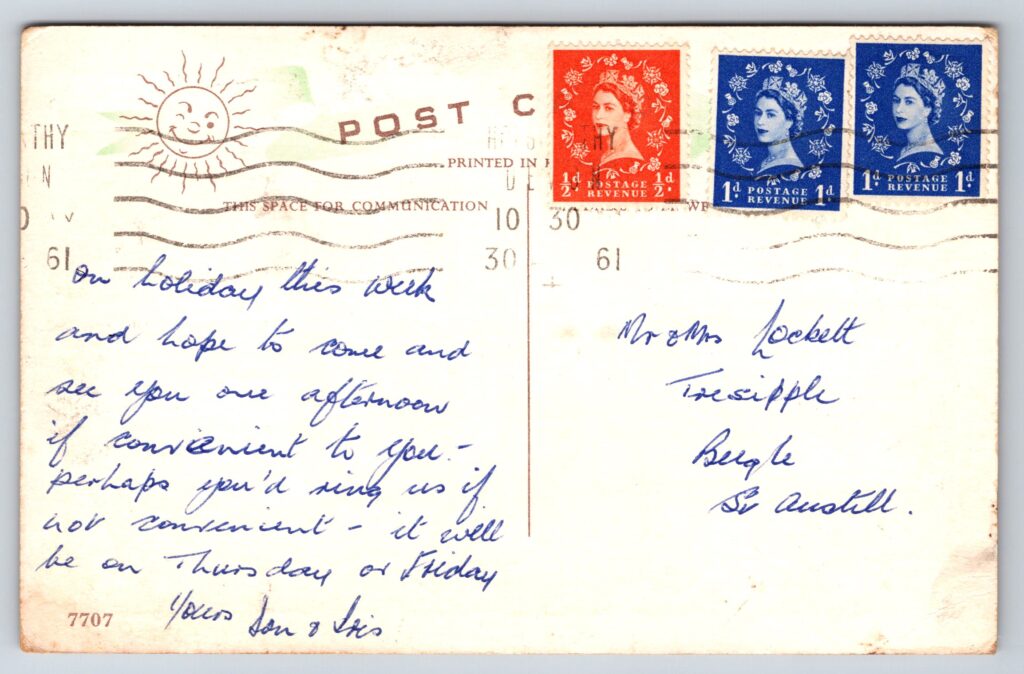 POST C
PRINTED IN
THIS SPACE FOR COMMUNICATION
½d ½d
POSTAGE
REVENUE
1d 1d
POSTAGE
REVENUE
1d 1d
POSTAGE
REVENUE
THY
N
61
THY
DEVON
10 30
30 61
On holiday this week
and hope to come and
see you one afternoon
if convenient to you -
perhaps you'd ring us if
not convenient - it will
be on Thursday or Friday
Yours
7707
Mr & Mrs Lockett
Tresipple
Bugle
St Austell.